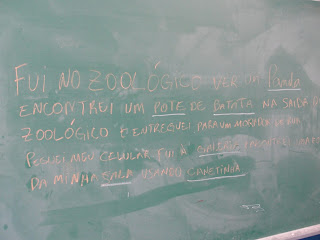 FUI NO ZOOLÓGICO VER UM Panda
ENCONTREI UM POTE DE BATATA NA SAÍDA DO
ZOOLÓGICO E ENTREGUEI PARA UM MORADOR DE RUA
PEGUEI MEU CELULAR FUI A
DA MINHA SALA USANDO CANETINHA